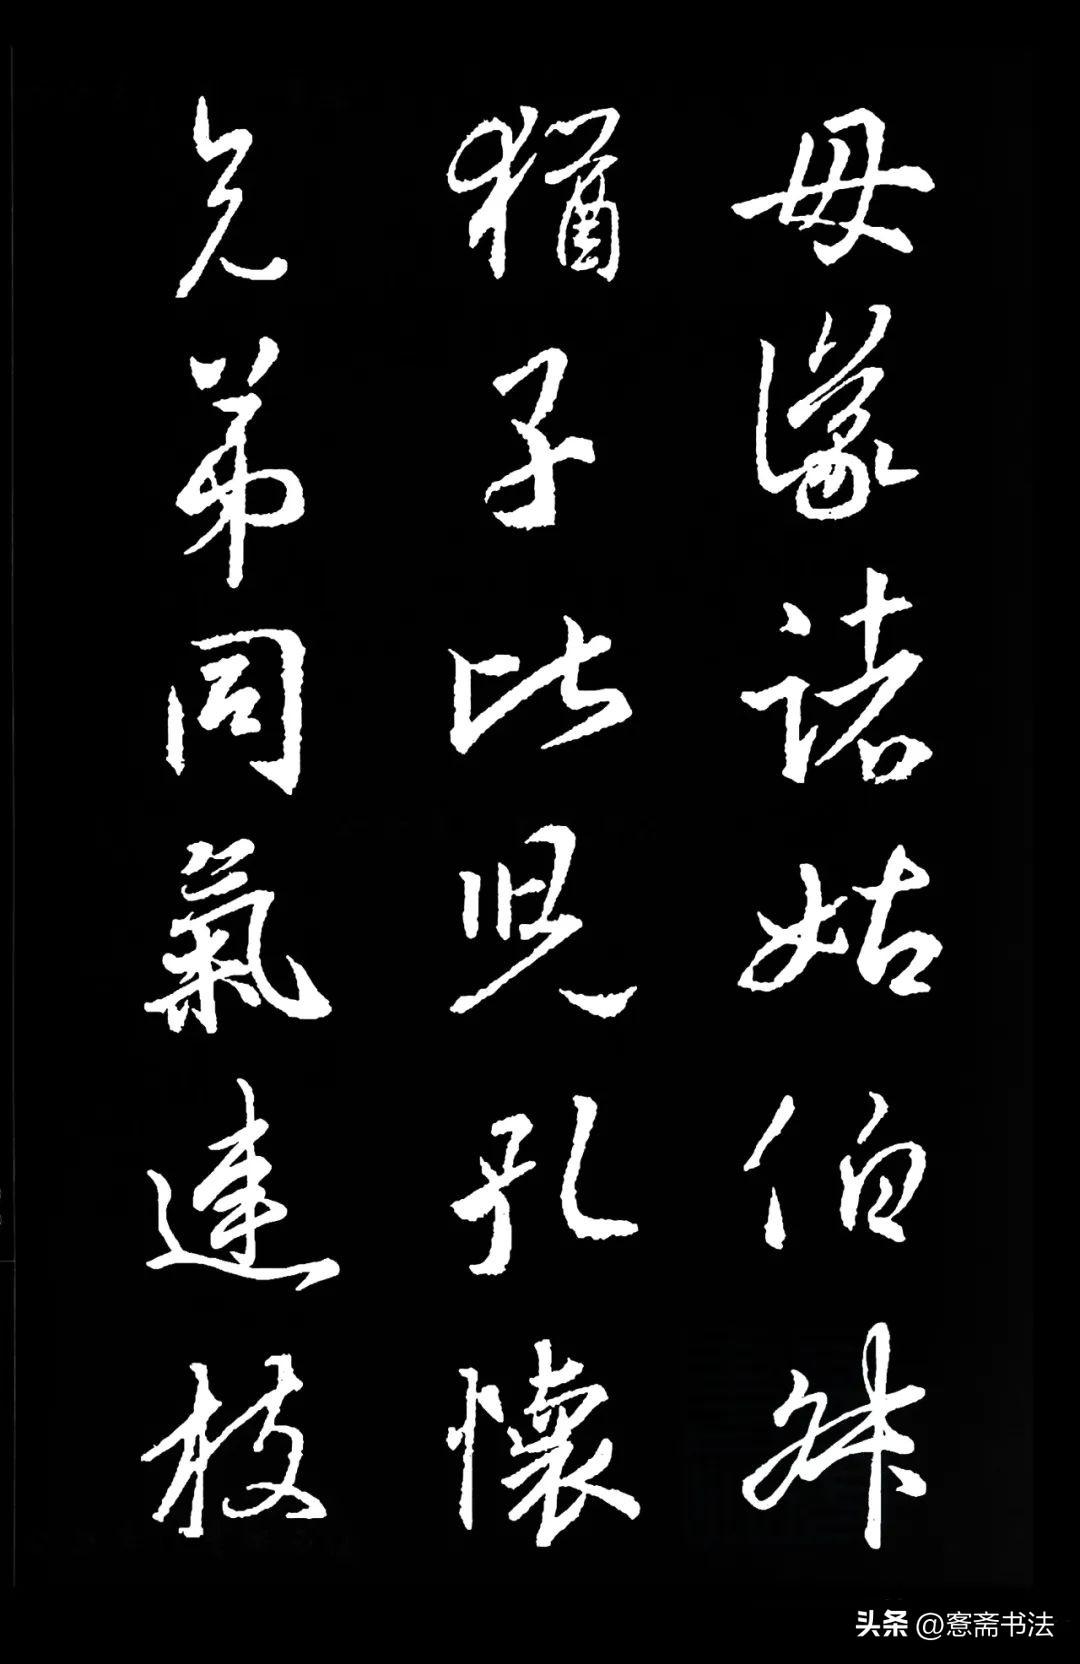 母儀諸姑伯叔
猶子比兒孔懷
兄弟同氣連枝
头条 @愙斋书法